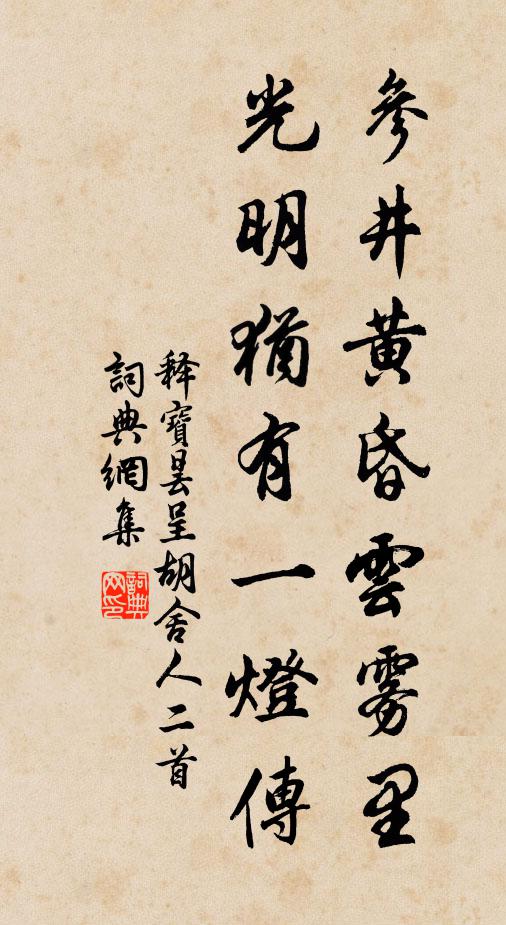 參井黃昏雲雾里
光明猶有一燈傳
释寶曇呈胡舍人二首
詞典網集
詞典网印